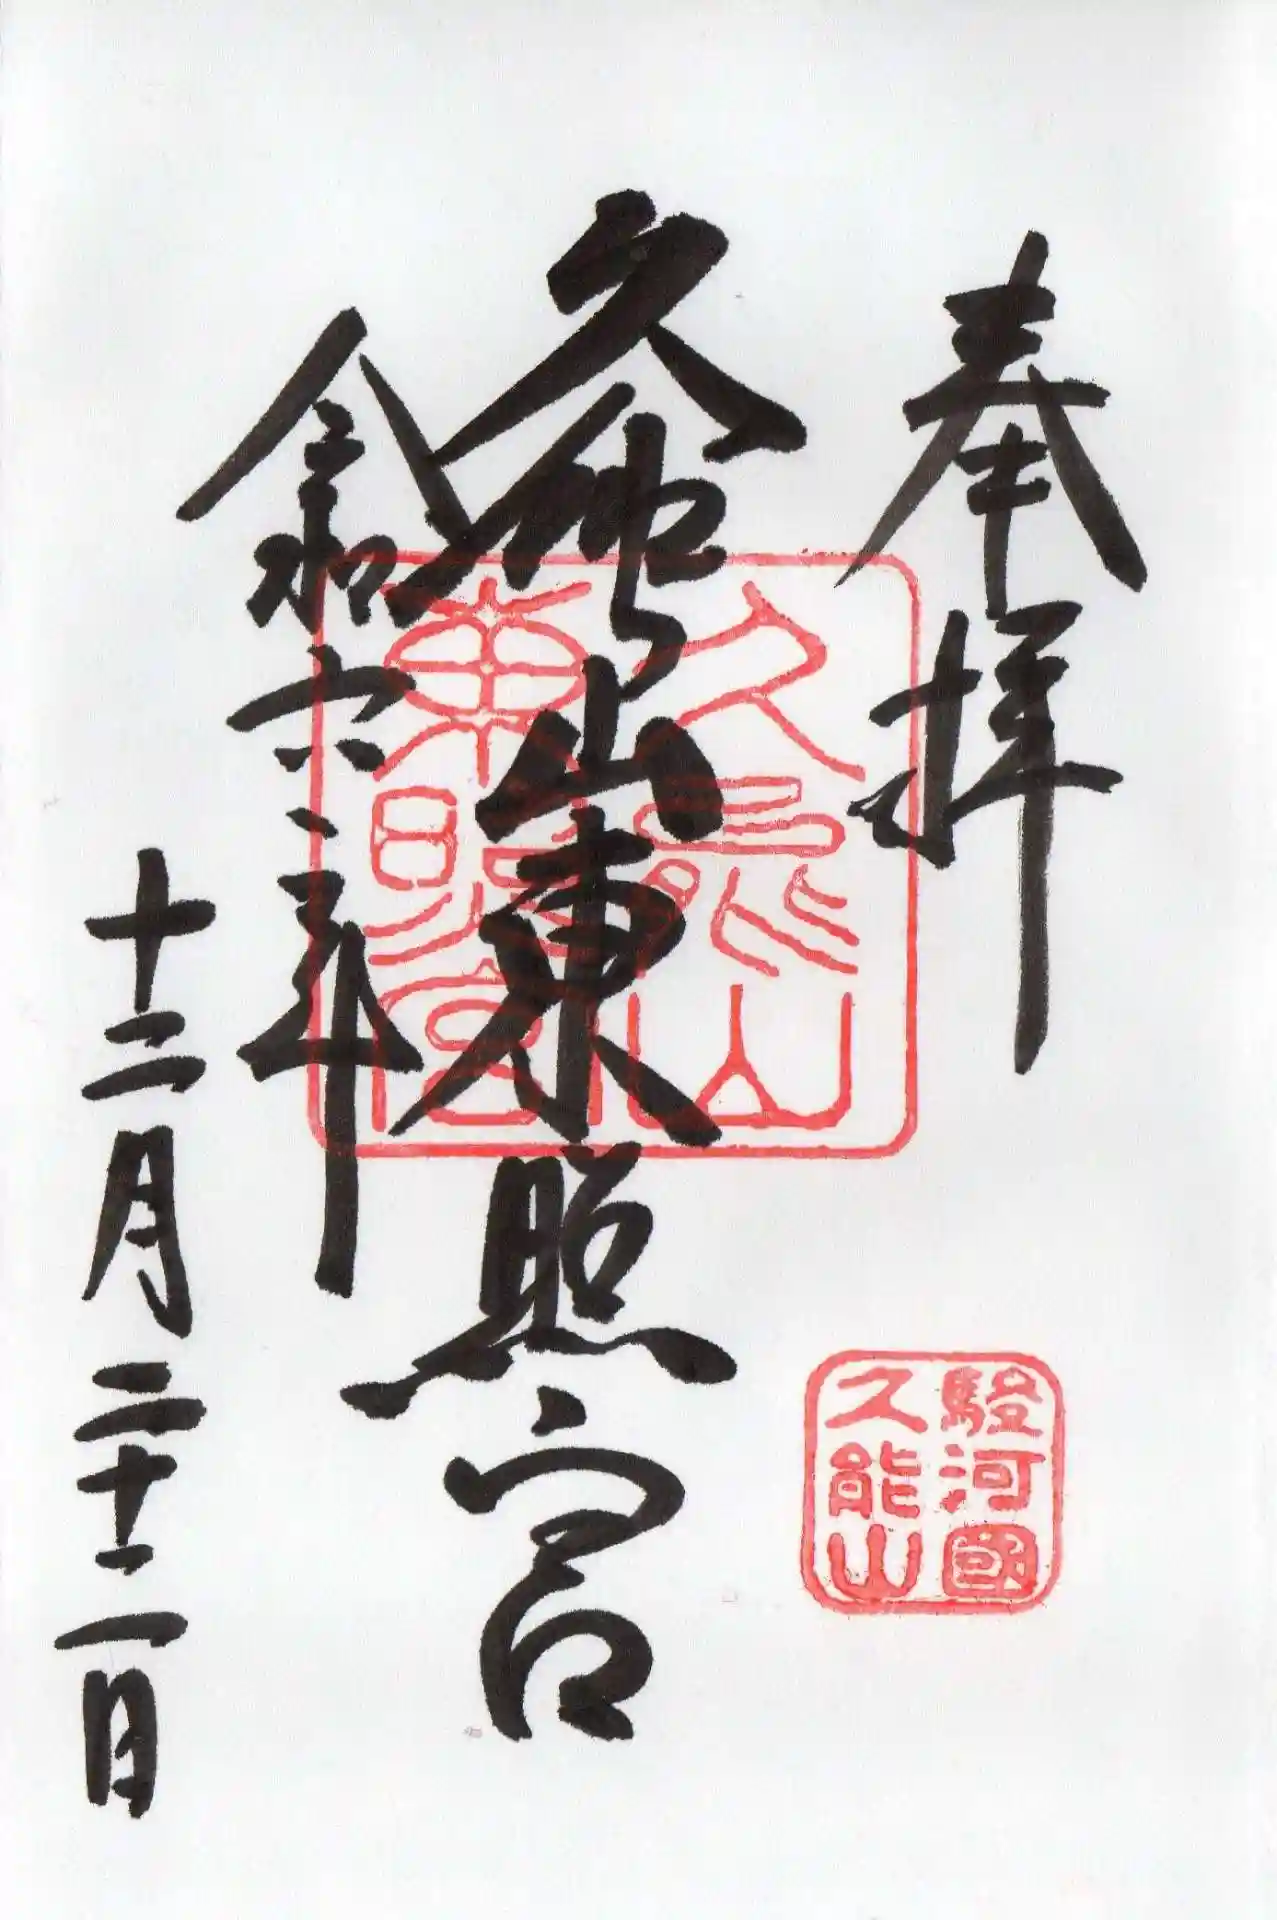 奉拝
久能山東照宮
令和六年
十二月二十二日
久能山
東照宮
駿河國
久能山